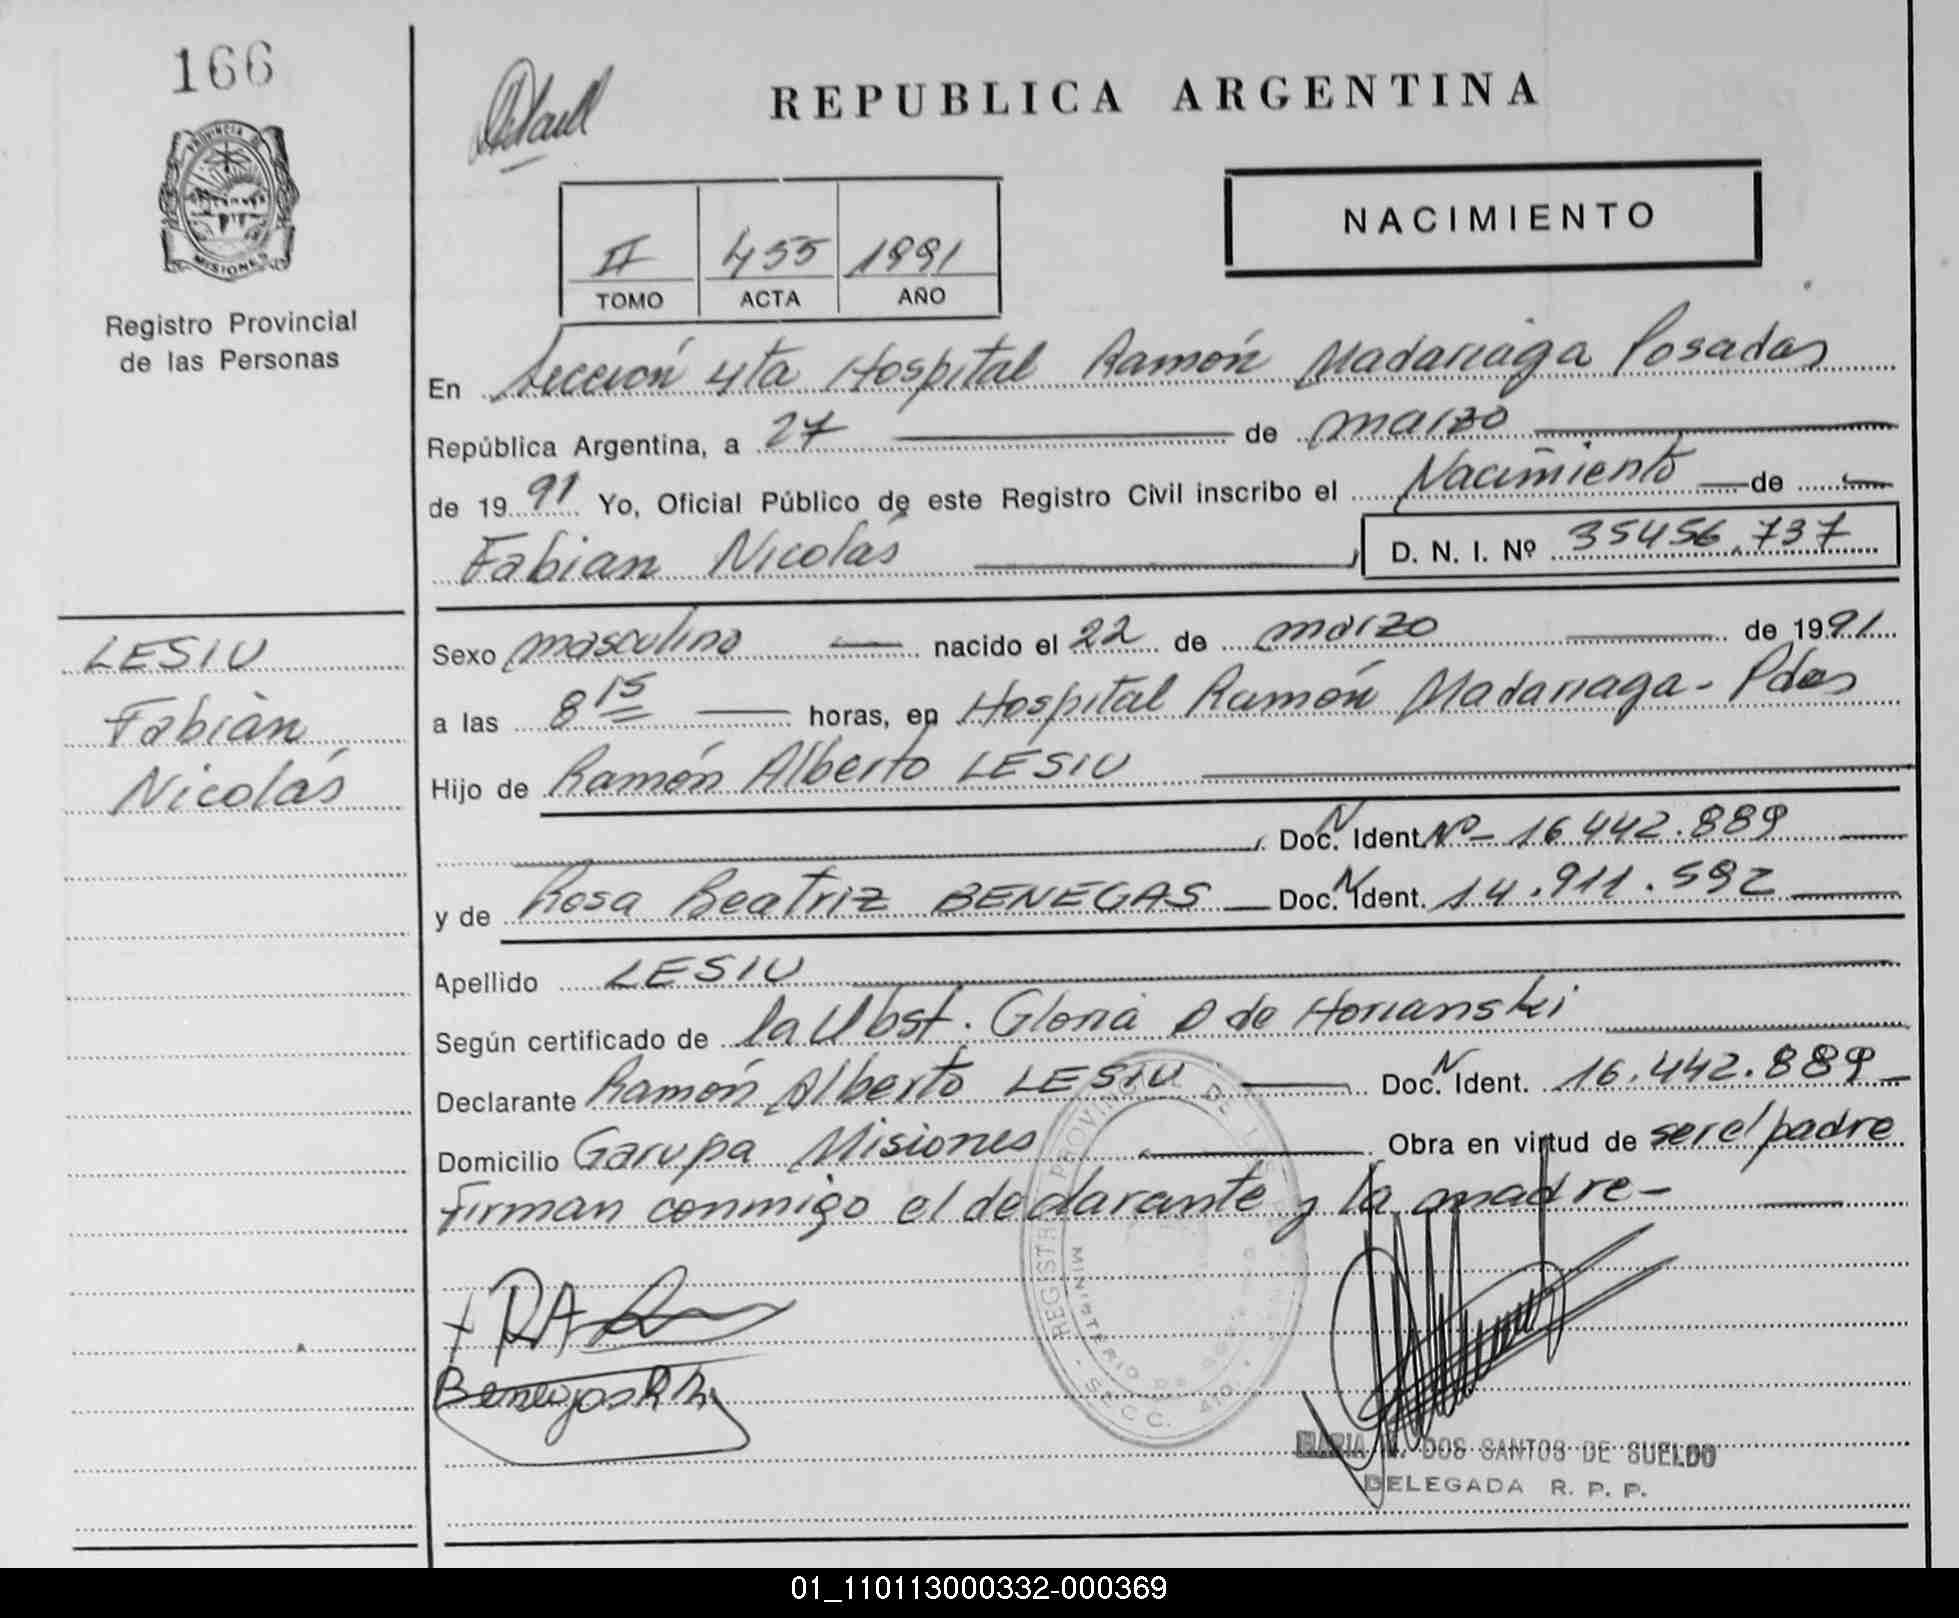 166
PROVINCIA DE
MISIONES
Registro Provincial
de las Personas
LESIU
Fabián
Nicolás
REPUBLICA ARGENTINA
NACIMIENTO
II 455 1991
TOMO ACTA AÑO
En Sección 4ta Hospital Ramón Madariaga Posadas
República Argentina, a 27 de marzo
de 1991 Yo, Oficial Público de este Registro Civil inscribo el Nacimiento de
Fabian Nicolás D. N. I. Nº 35456.737
Sexo masculino nacido el 22 de marzo de 1991
a las 8 15 horas, en Hospital Ramón Madariaga - Pdas
Hijo de Ramón Alberto LESIU
Doc. N Ident. Nº - 16.442.889
y de Rosa Beatriz BENEGAS Doc. N Ident. 14.911.592
Apellido LESIU
Según certificado de la Obst. Gloria D de Horianski
Declarante Ramón Alberto LESIU Doc. N Ident. 16.442.889
Domicilio Garupa Misiones Obra en virtud de ser el padre
Firman conmigo el declarante y la madre -
REGISTRO PROVINCIAL DE LAS
MINISTERIO DE
SECC. 4TO.
+ RA
Benegas R B
MARIA DOS SANTOS DE SUELDO
DELEGADA R. P. P.
01_110113000332-000369